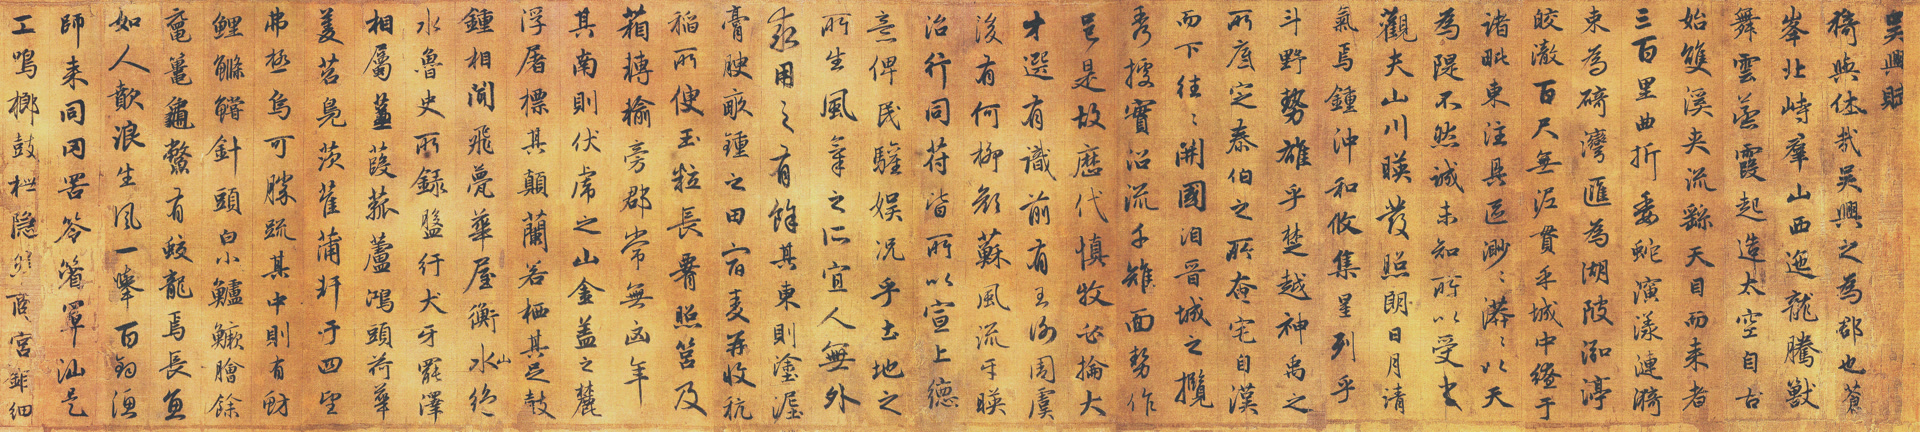 吳興賦
猗與休哉吳興之為郡也蒼
峯北峙群山西迤龍騰獸
舞雲蒸霞起造太空自古
始雙溪夾流繇天目而來者
三百里曲折委蛇演漾漣漪
束為碕灣匯為湖陂泓渟
皎澈百尺無泥貫乎城中繚于
諸毗東注具區渺〻漭〻以天
為隄不然誠未知所以受之
觀夫山川暎發照朗日月清
氣焉鍾沖和攸集星列乎
斗野勢雄乎楚越神禹之
所底定泰伯之所奄宅自漢
而下往〻開國洎晉城之攬
秀據實沿流千雉面勢作
邑是故歷代慎牧必掄大
才選有識前有王謝周虞
後有何柳顏蘇風流互暎
治行同符皆所以宣上德
意俾民驩娛況乎土地之
所生風氣之所宜人無外
求用之有餘其東則塗泥
膏腴畝鍾之田宿麦再收秔
稲所便玉粒長腰照筥及
箱轉輸旁郡常無凶年
其南則伏虎之山金盖之麓
浮屠標其顛蘭若栖其足鼓
鍾相聞飛甍華屋衡山水絕
水魯史所録盤紆犬牙罷澤
相屬蒹葭菰蘆鴻頭荷華
菱苕鳧茨萑蒲軒于四望
弗極烏可勝疏其中則有魴
鯉鰷鱨針頭白小鱸鱖鱠餘
黿鼉龜鱉有蛟龍焉長魚
如人歕浪生風一舉百鈞漁
師來同罔罟笭箵罩汕是
工鳴榔鼓枻隱然商宮鮮細